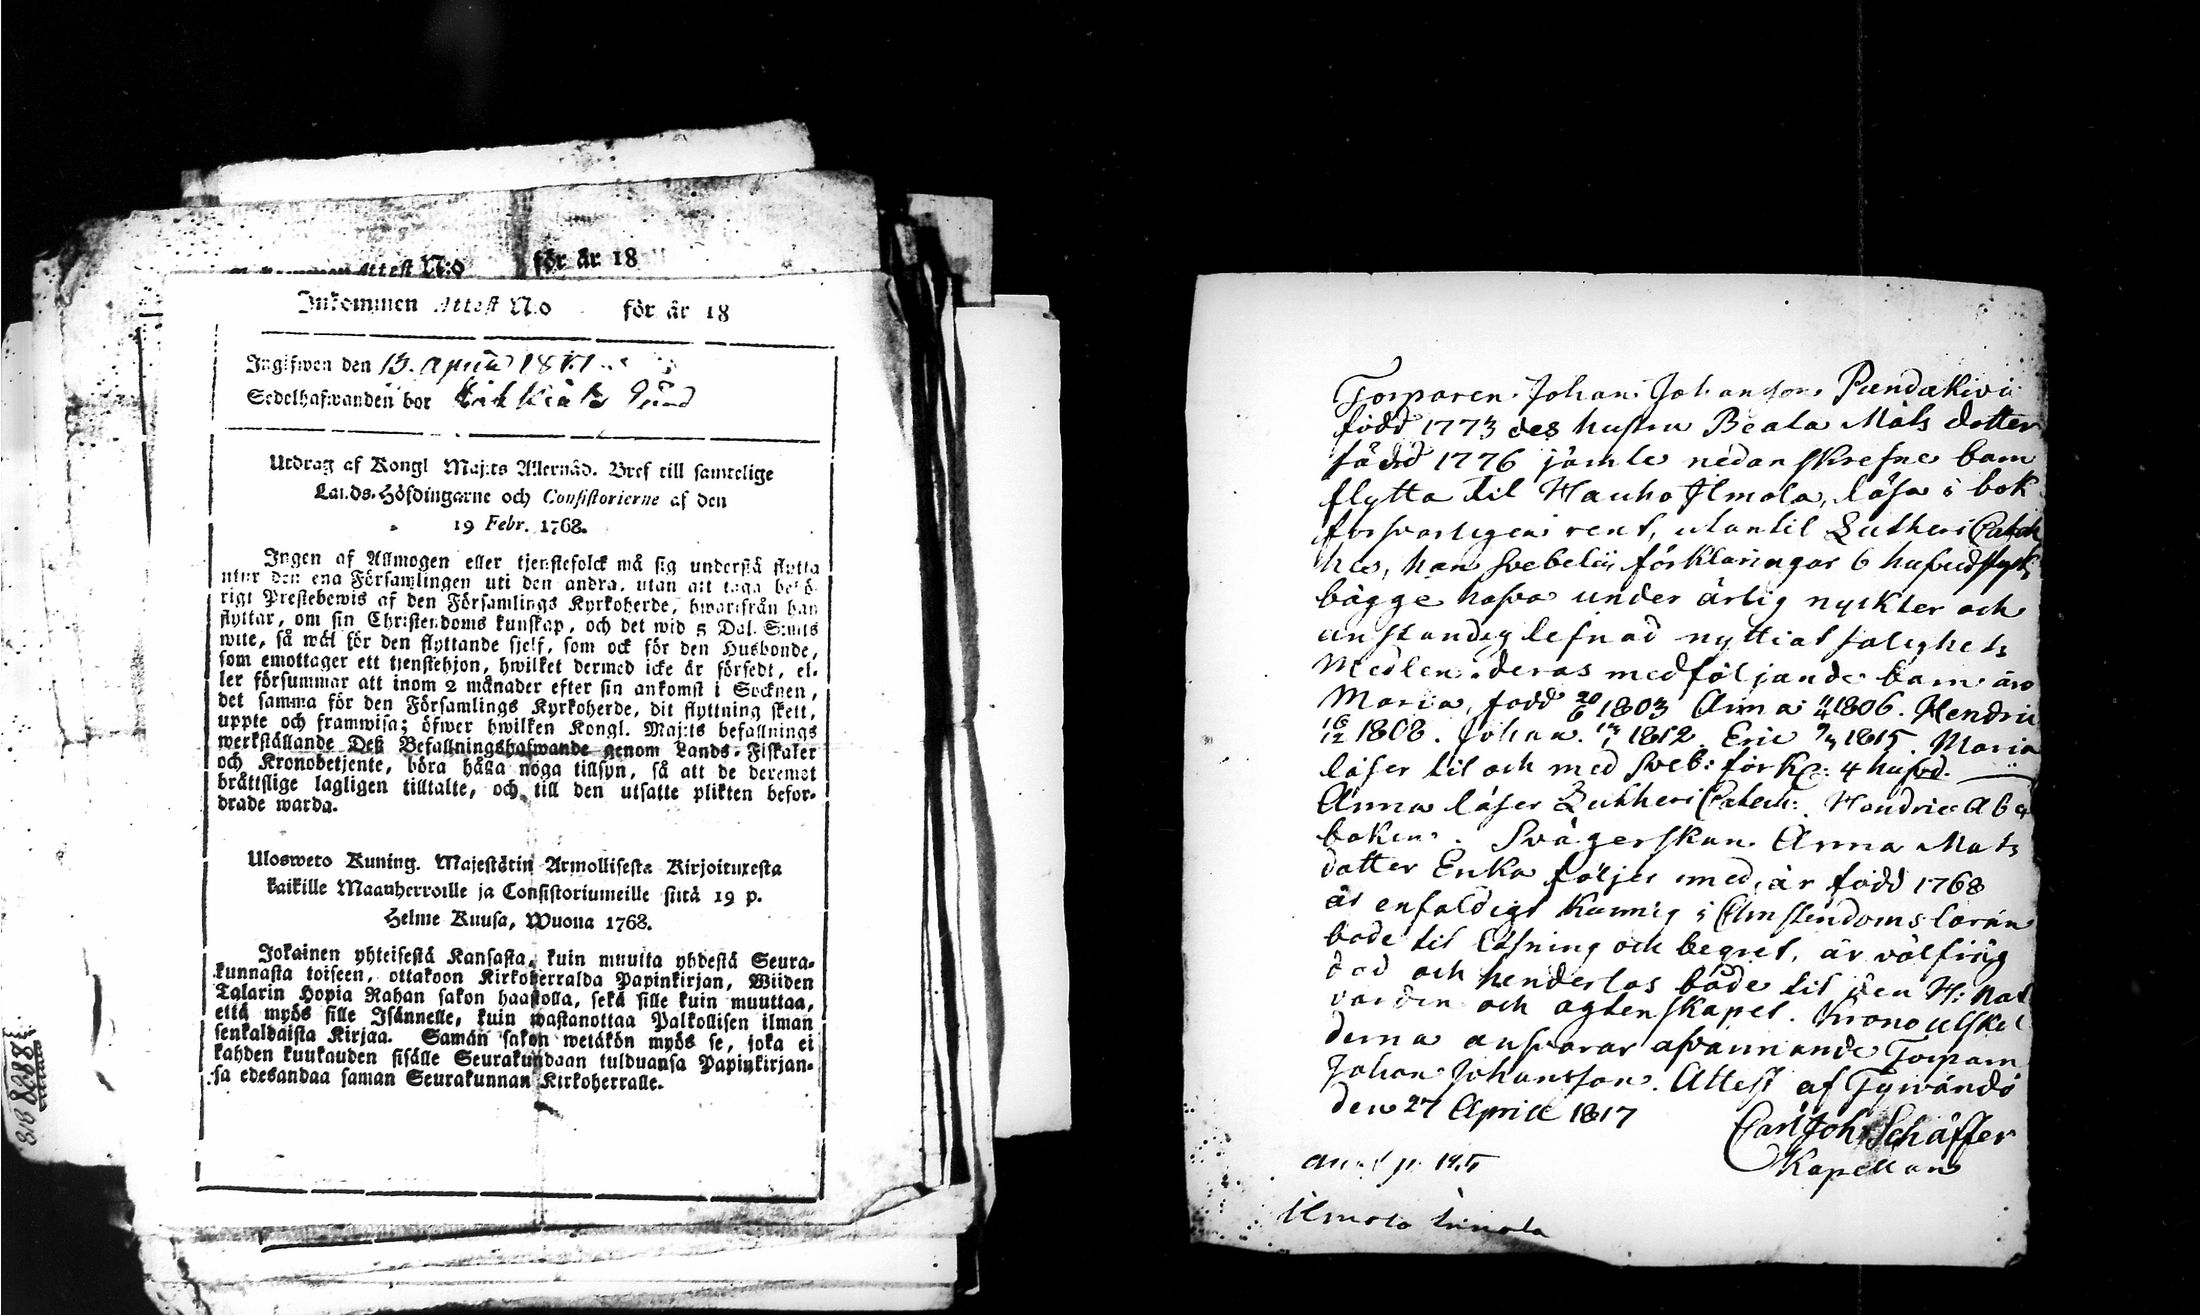 för år 18
Inkommen Attest N:o för år 18
Ingifwen den 13. April
Sedelhafwanden bor
Utdrag af Kongl Maj:ts Allernåd. Bref till samtelige
Lands-Höfdingarne och Consistorierne af den
19 Febr. 1768.
Ingen af Allmogen eller tjenstefolck må sig understå flytta
utur den ena Församlingen uti den andra, utan att taga behö-
rigt Prestebewis af den Församlings Kyrkoherde, hwarifrån han
flyttar, om sin Christendoms kunskap, och det wid 5 Dal. S:mts
wite, så wäl för den flyttande sjelf, som ock för den Husbonde,
som emottager ett tjenstehjon, hwilket dermed icke är försedt, el-
ler försummar att inom 2 månader efter sin ankomst i Socknen,
det samma för den Församlings Kyrkoherde, dit flyttning skett,
uppte och framwisa; öfwer hwilken Kongl. Maj:ts befallnings
werkställande Deß Befallningshafwande genom Lands-Fiskaler
och Kronobetjente, böra hålla noga tillsyn, så att de deremot
bråttslige lagligen tilltalte, och till den utsatte plikten befor-
drade warda.
Ulosweto Kuning. Majestätin Armollisesta Kirjoituxesta
kaikille Maanherroille ja Consistoriumeille siitä 19 p.
Helme Kuusa, Wuona 1768.
Jokainen yhteisestä Kansasta, kuin muutta yhdestä Seura-
kunnasta toiseen, ottakoon Kirkoherralda Papinkirjan, Wiiden
Talarin Hopia Rahan sakon haastolla, sekä sille kuin muuttaa,
että myös sille Isännelle, kuin wastanottaa Palkollisen ilman
senkaldaista Kirjaa. Samän sakon wetäkön myös se, joka ei
kahden kuukauden sisälle Seurakundaan tulduansa Papinkirjan-
sa edesandaa saman Seurakunnan Kirkoherralle.
Torparen Johan Johansson Pændækivi
född 1773 des hustru Beata Mats dotter
född 1776 jämte nedanskrefne barn
flytta til Hauho Ilmola, läsa i bok
försvarligen rent, utantil Lutheri Catech
hes, han Svebelii förklaringar 6 hufvudstyck,
bägge hafva under ärlig nyckter och
anständig lefnad nyttiat salighets
Medlen. deras medföljande barn äro
Maria, född 20/6 1803 Anna 11/4 1806. Hendric
16/12 1808. Johan. 13/1 1812. Eric 9/3 1815. Maria
läser til och med Sveb: förkl: 4 hufvd.
Anna läser Lutheri Catech: Hendric Abc
boken. Svägerskan Anna Mats
dotter Enka följer med, är född 1768
är enfaldigt kunnig i Christendoms läran
både til läsning och begrep, är välfräg
dad och hinderlös både til den H: Nat
varden och agtenskapet. Kronoutskyl
derna ansvarar afvannande Torparn
Johan Johansson. Attest af Tyrvändö
den 27 April 1817
Carl Joh: Schäffer
Kapellan